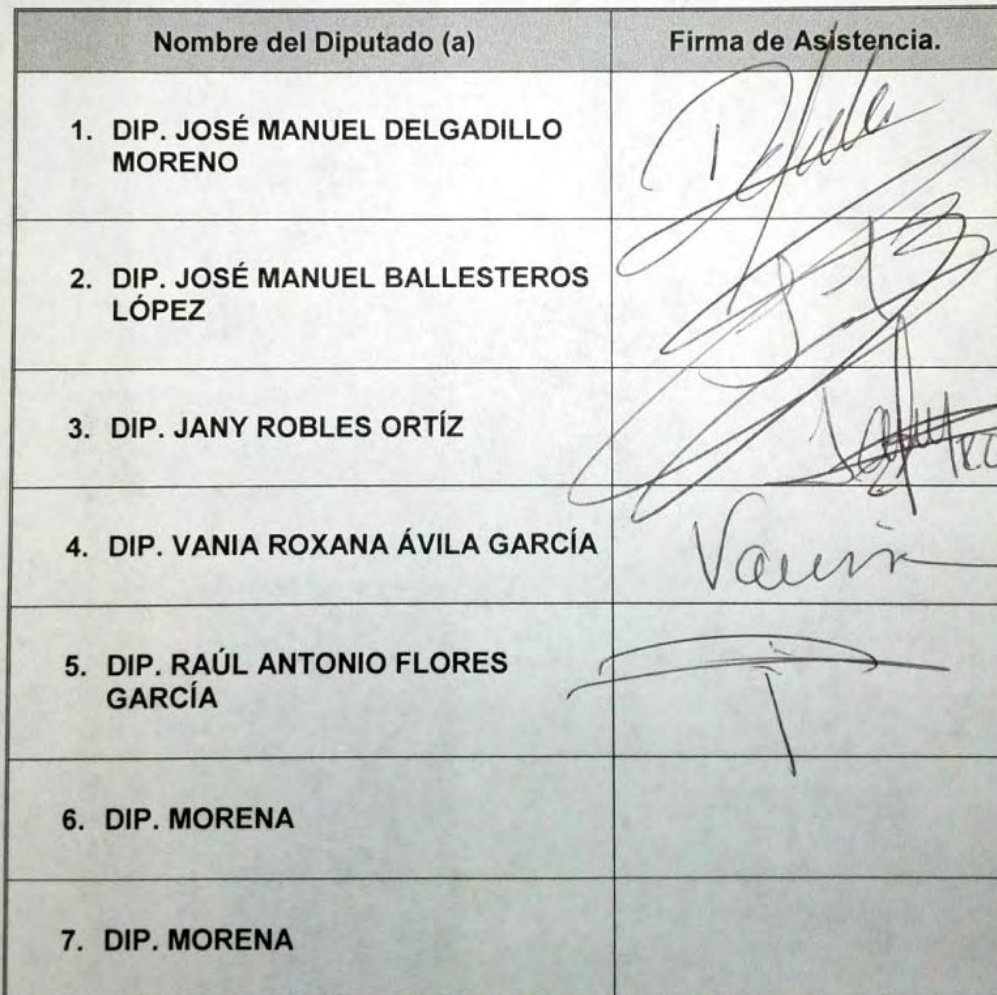 Nombre del Diputado (a) Firma de Asistencia.
1. DIP. JOSÉ MANUEL DELGADILLO
MORENO
2. DIP. JOSÉ MANUEL BALLESTEROS
LÓPEZ
3. DIP. JANY ROBLES ORTÍZ
4. DIP. VANIA ROXANA ÁVILA GARCÍA
Vania
5. DIP. RAÚL ANTONIO FLORES
GARCÍA
6. DIP. MORENA
7. DIP. MORENA